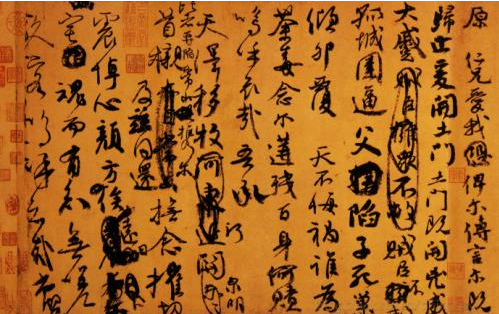 原仁兄愛我俾爾傳言爾既
歸止爰開土門土門既開凶威
大蹙賊臣不
孤城圍逼父陷子死巢
傾卵覆天不悔禍誰為
荼毒念爾遘殘百身何贖
嗚乎哀哉吾承
天澤移牧河關
泉明
比者再陷常山攜爾
首櫬及茲同還撫念摧切
震悼心顏方俟遠日
宅魂而有知無嗟
久客嗚呼哀哉尚